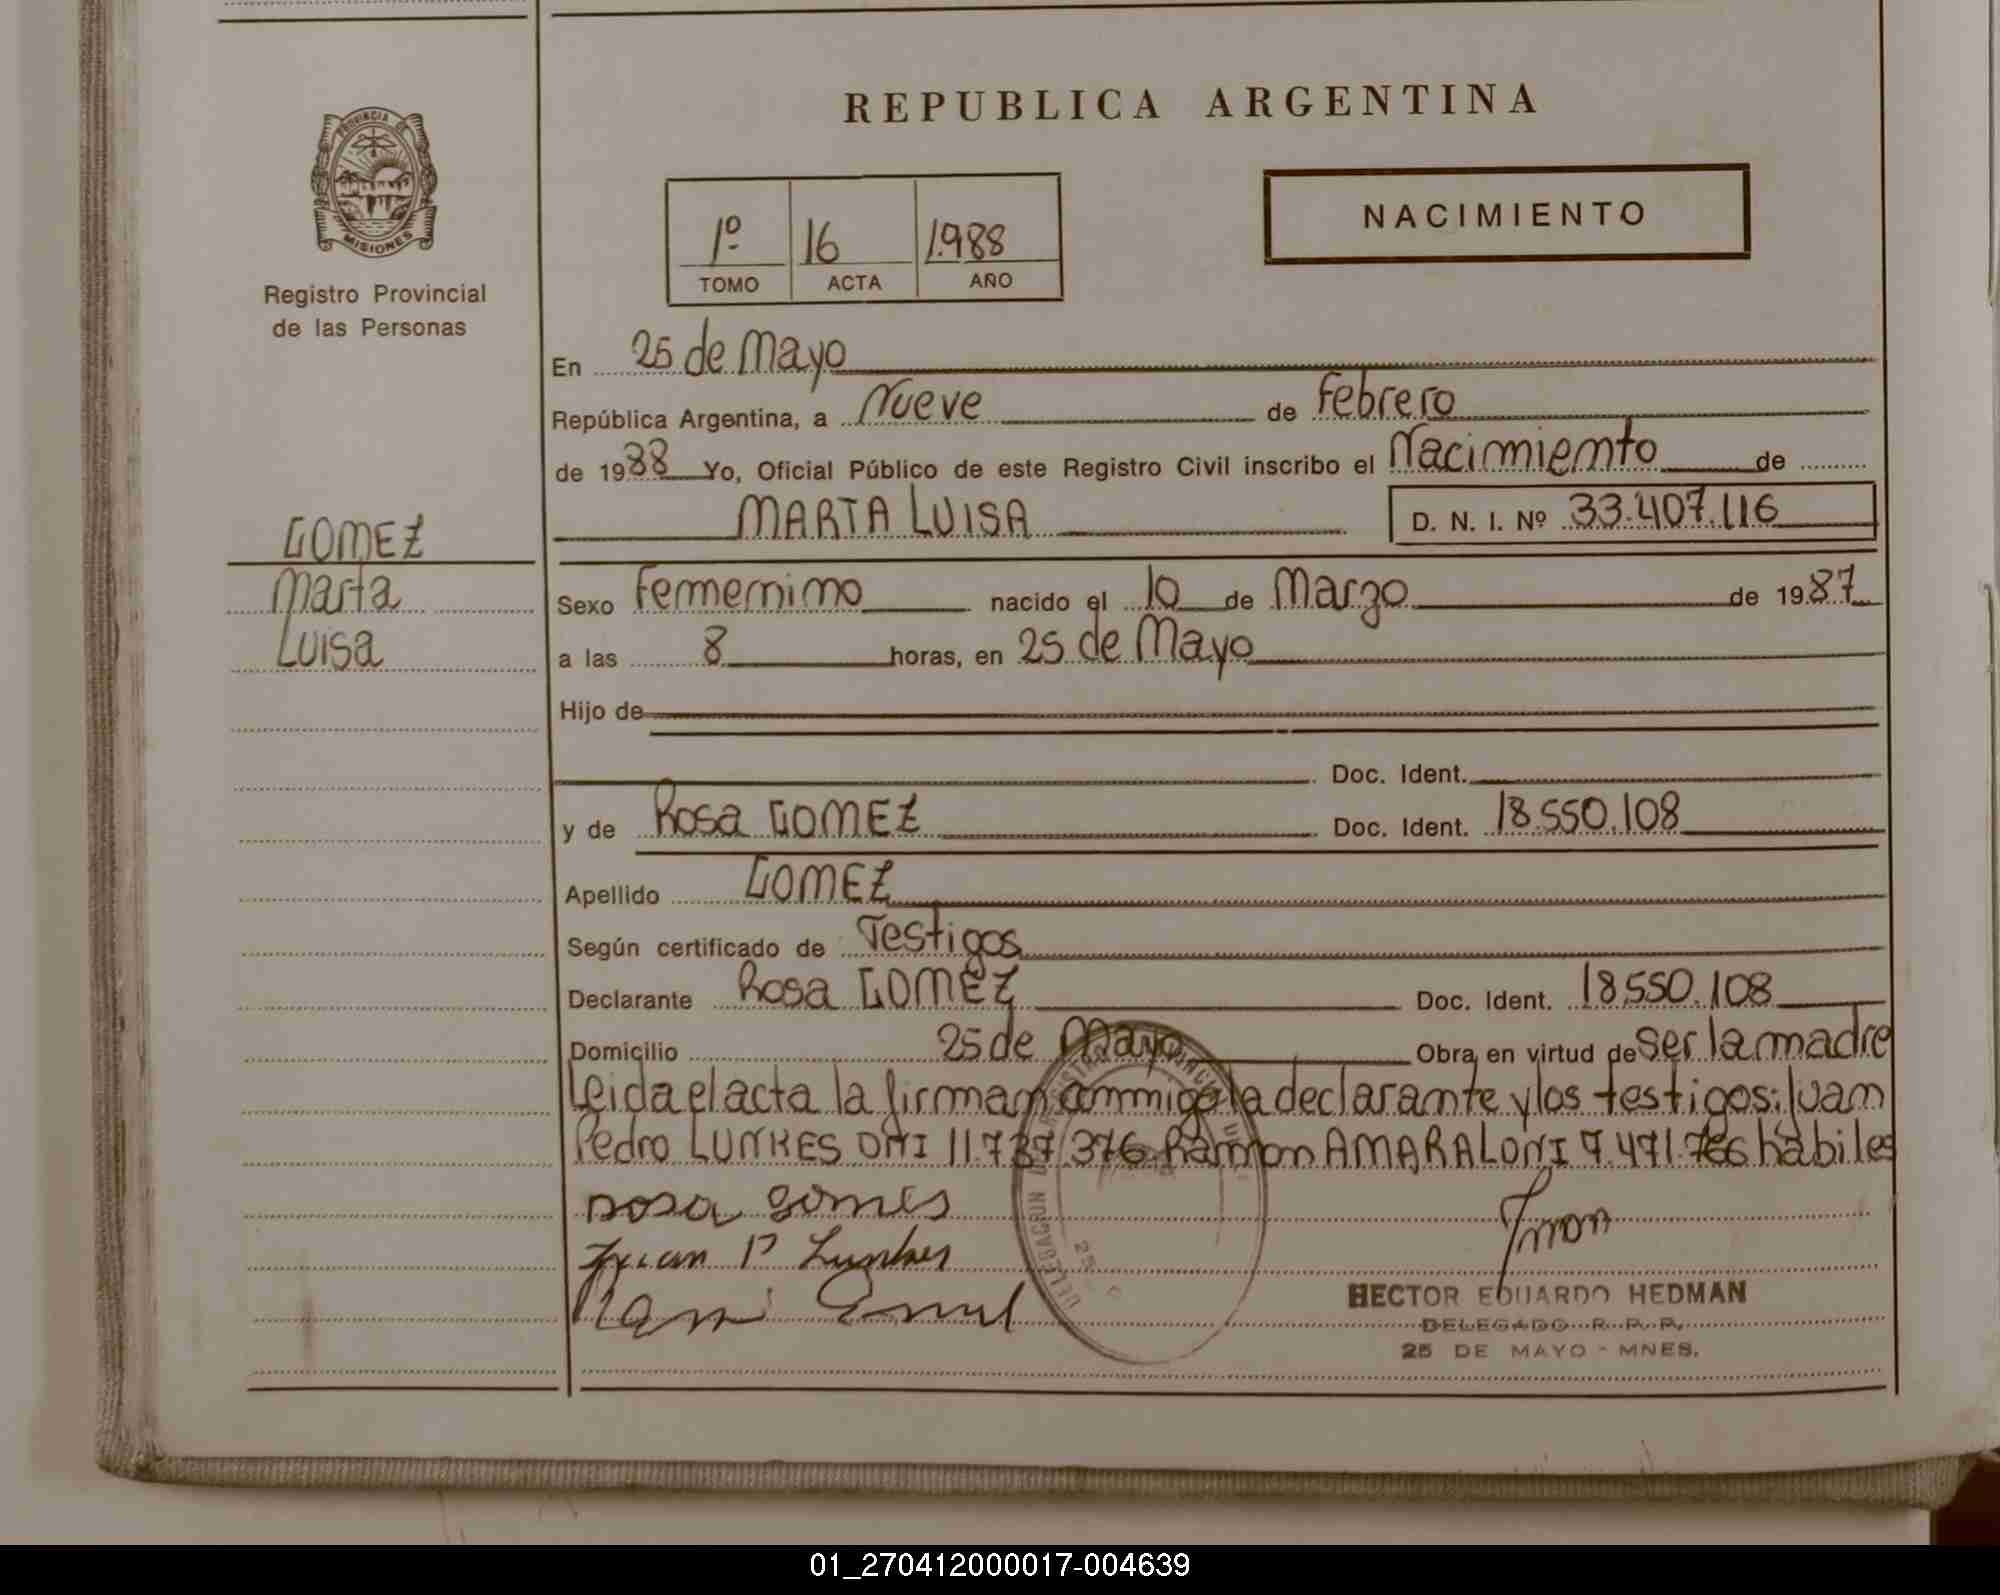 REPUBLICA ARGENTINA
PROVINCIA DE
MISIONES
Registro Provincial
de las Personas
1º 16 1.988
TOMO ACTA AÑO
NACIMIENTO
En 25 de Mayo
República Argentina, a Nueve de Febrero
de 1988 Yo, Oficial Público de este Registro Civil inscribo el Nacimiento de
MARTA LUISA D. N. I. Nº 33.407.116
GOMEZ
Marta
Luisa
Sexo Femenino nacido el 10 de Marzo de 1987
a las 8 horas, en 25 de Mayo
Hijo de
Doc. Ident.
y de Rosa GOMEZ Doc. Ident. 18.550.108
Apellido GOMEZ
Según certificado de Testigos
Declarante Rosa GOMEZ Doc. Ident. 18.550.108
Domicilio 25 de Mayo Obra en virtud de ser la madre
Leida el acta la firman conmigo la declarante y los testigos: Juan
Pedro LUNKES DNI 11.737.376 Ramon AMARAL DNI 7.471.766 habiles
rosa gomes
Juan P Lunkes
DELEGACION
25
HECTOR EDUARDO HEDMAN
DELEGADO R. P. P.
25 DE MAYO - MNES.
01_270412000017-004639